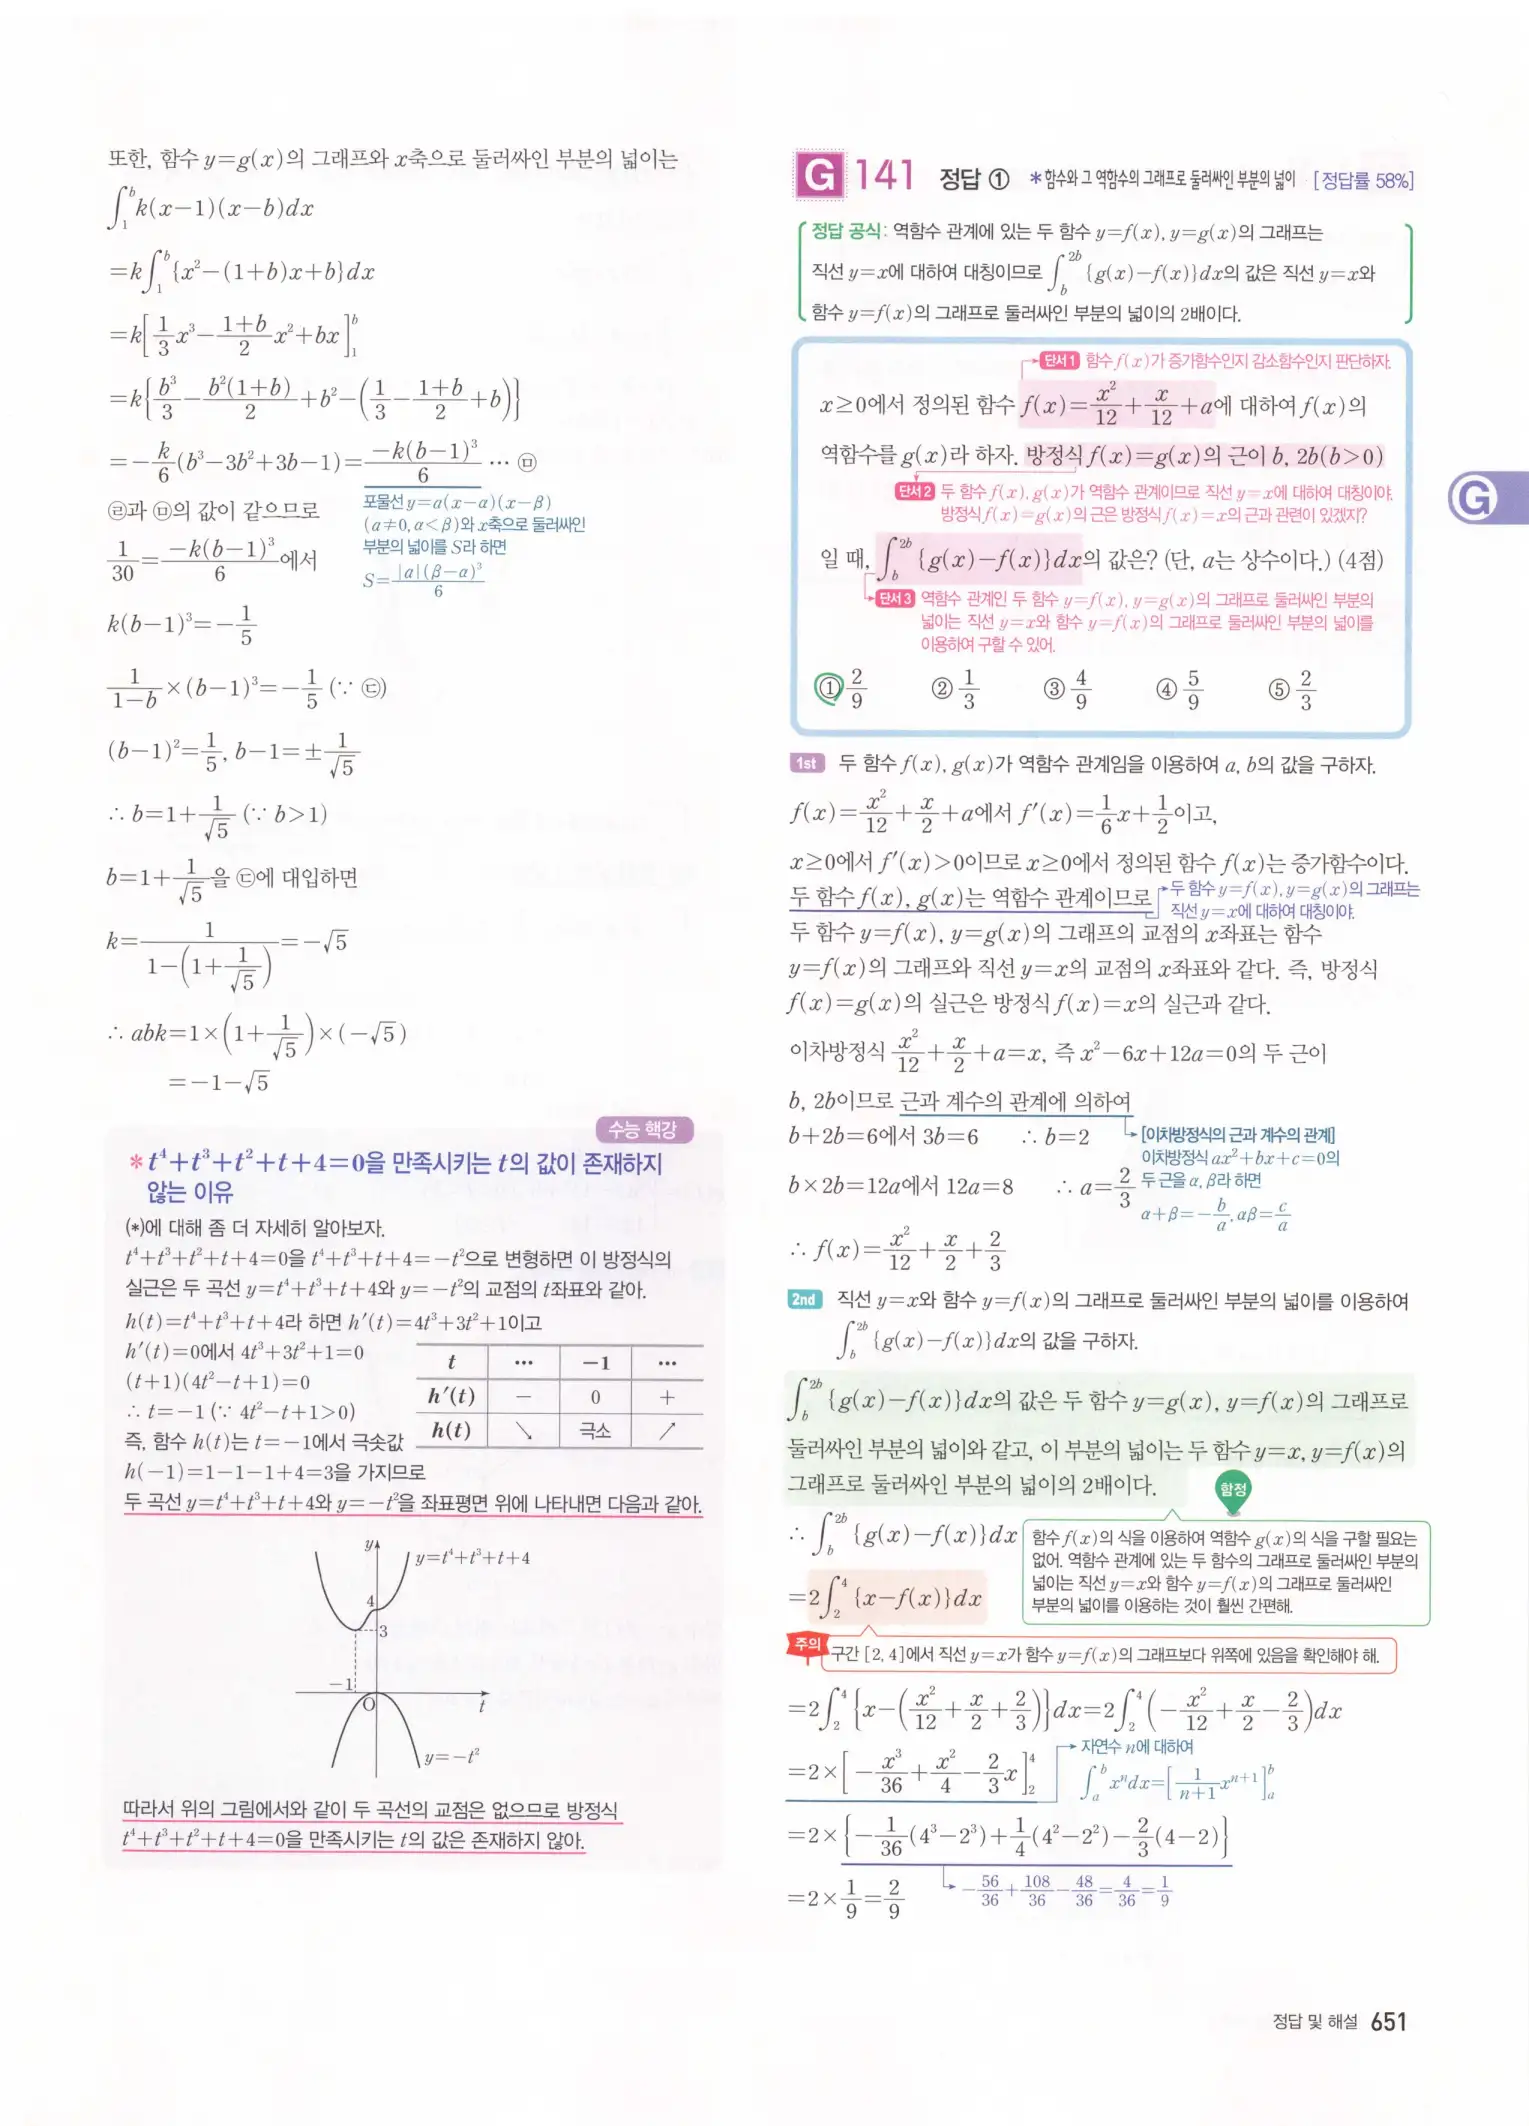 또한, 함수 y=g(x)의 그래프와 x축으로 둘러싸인 부분의 넓이는
∫₁ᵇ k(x−1)(x−b)dx
=k∫₁ᵇ {x²−(1+b)x+b}dx
=k[1/3 x³−(1+b)/2 x²+bx]₁ᵇ
=k{b³/3−b²(1+b)/2+b²−(1/3−(1+b)/2+b)}
=−k/6(b³−3b²+3b−1)=−k(b−1)³/6 … ㉤
㉣과 ㉤의 값이 같으므로
포물선 y=a(x−α)(x−β)
(a≠0, α<β)와 x축으로 둘러싸인
부분의 넓이를 S라 하면
S=|a|(β−α)³/6
1/30=−k(b−1)³/6에서
k(b−1)³=−1/5
1/(1−b)×(b−1)³=−1/5 (∵ ㉢)
(b−1)²=1/5, b−1=±1/√5
∴ b=1+1/√5 (∵ b>1)
b=1+1/√5을 ㉢에 대입하면
k=1/(1−(1+1/√5))=−√5
∴ abk=1×(1+1/√5)×(−√5)
=−1−√5
수능 핵강
*t⁴+t³+t²+t+4=0을 만족시키는 t의 값이 존재하지
않는 이유
(*)에 대해 좀 더 자세히 알아보자.
t⁴+t³+t²+t+4=0을 t⁴+t³+t+4=−t²으로 변형하면 이 방정식의
실근은 두 곡선 y=t⁴+t³+t+4와 y=−t²의 교점의 t좌표와 같아.
h(t)=t⁴+t³+t+4라 하면 h′(t)=4t³+3t²+1이고
h′(t)=0에서 4t³+3t²+1=0
(t+1)(4t²−t+1)=0
∴ t=−1 (∵ 4t²−t+1>0)
즉, 함수 h(t)는 t=−1에서 극솟값
t … −1 …
h′(t) − 0 +
h(t) ↘ 극소 ↗
h(−1)=1−1−1+4=3을 가지므로
두 곡선 y=t⁴+t³+t+4와 y=−t²을 좌표평면 위에 나타내면 다음과 같아.
y
y=t⁴+t³+t+4
4
3
−1
O
t
y=−t²
따라서 위의 그림에서와 같이 두 곡선의 교점은 없으므로 방정식
t⁴+t³+t²+t+4=0을 만족시키는 t의 값은 존재하지 않아.
G 141 정답 ① *함수와 그 역함수의 그래프로 둘러싸인 부분의 넓이 [정답률 58%]
정답 공식: 역함수 관계에 있는 두 함수 y=f(x), y=g(x)의 그래프는
직선 y=x에 대하여 대칭이므로 ∫_b^{2b} {g(x)−f(x)}dx의 값은 직선 y=x와
함수 y=f(x)의 그래프로 둘러싸인 부분의 넓이의 2배이다.
단서1 함수 f(x)가 증가함수인지 감소함수인지 판단하자.
x≥0에서 정의된 함수 f(x)=x²/12+x/12+a에 대하여 f(x)의
역함수를 g(x)라 하자. 방정식 f(x)=g(x)의 근이 b, 2b(b>0)
단서2 두 함수 f(x), g(x)가 역함수 관계이므로 직선 y=x에 대하여 대칭이야.
방정식 f(x)=g(x)의 근은 방정식 f(x)=x의 근과 관련이 있겠지?
일 때, ∫_b^{2b} {g(x)−f(x)}dx의 값은? (단, a는 상수이다.) (4점)
단서3 역함수 관계인 두 함수 y=f(x), y=g(x)의 그래프로 둘러싸인 부분의
넓이는 직선 y=x와 함수 y=f(x)의 그래프로 둘러싸인 부분의 넓이를
이용하여 구할 수 있어.
① 2/9 ② 1/3 ③ 4/9 ④ 5/9 ⑤ 2/3
1st 두 함수 f(x), g(x)가 역함수 관계임을 이용하여 a, b의 값을 구하자.
f(x)=x²/12+x/2+a에서 f′(x)=1/6 x+1/2이고,
x≥0에서 f′(x)>0이므로 x≥0에서 정의된 함수 f(x)는 증가함수이다.
두 함수 f(x), g(x)는 역함수 관계이므로
두 함수 y=f(x), y=g(x)의 그래프는
직선 y=x에 대하여 대칭이야.
두 함수 y=f(x), y=g(x)의 그래프의 교점의 x좌표는 함수
y=f(x)의 그래프와 직선 y=x의 교점의 x좌표와 같다. 즉, 방정식
f(x)=g(x)의 실근은 방정식 f(x)=x의 실근과 같다.
이차방정식 x²/12+x/2+a=x, 즉 x²−6x+12a=0의 두 근이
b, 2b이므로 근과 계수의 관계에 의하여
b+2b=6에서 3b=6 ∴ b=2
b×2b=12a에서 12a=8 ∴ a=2/3
[이차방정식의 근과 계수의 관계]
이차방정식 ax²+bx+c=0의
두 근을 α, β라 하면
α+β=−b/a, αβ=c/a
∴ f(x)=x²/12+x/2+2/3
2nd 직선 y=x와 함수 y=f(x)의 그래프로 둘러싸인 부분의 넓이를 이용하여
∫_b^{2b} {g(x)−f(x)}dx의 값을 구하자.
∫_b^{2b} {g(x)−f(x)}dx의 값은 두 함수 y=g(x), y=f(x)의 그래프로
둘러싸인 부분의 넓이와 같고, 이 부분의 넓이는 두 함수 y=x, y=f(x)의
그래프로 둘러싸인 부분의 넓이의 2배이다.
함정
∴ ∫_b^{2b} {g(x)−f(x)}dx
함수 f(x)의 식을 이용하여 역함수 g(x)의 식을 구할 필요는
없어. 역함수 관계에 있는 두 함수의 그래프로 둘러싸인 부분의
넓이는 직선 y=x와 함수 y=f(x)의 그래프로 둘러싸인
부분의 넓이를 이용하는 것이 훨씬 간편해.
=2∫₂⁴ {x−f(x)}dx
주의 구간 [2, 4]에서 직선 y=x가 함수 y=f(x)의 그래프보다 위쪽에 있음을 확인해야 해.
=2∫₂⁴ {x−(x²/12+x/2+2/3)}dx=2∫₂⁴ (−x²/12+x/2−2/3)dx
=2×[−x³/36+x²/4−2/3 x]₂⁴
자연수 n에 대하여
∫ₐᵇ xⁿdx=[1/(n+1) xⁿ⁺¹]ₐᵇ
=2×{−1/36(4³−2³)+1/4(4²−2²)−2/3(4−2)}
−56/36+108/36−48/36=4/36=1/9
=2×1/9=2/9
G
정답 및 해설 651